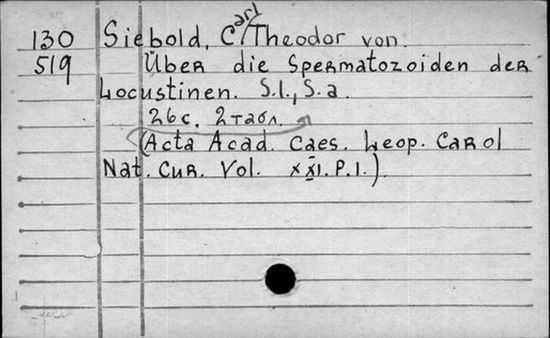 130 Siebold, Carl Theodor von.
519 Über die Spermatozoiden der
Locustinen. S.l., S.a.
26 с. 2 табл.
(Acta Acad. Caes. Leop. Carol
Nat. Cur. Vol. XXI. P.I.).